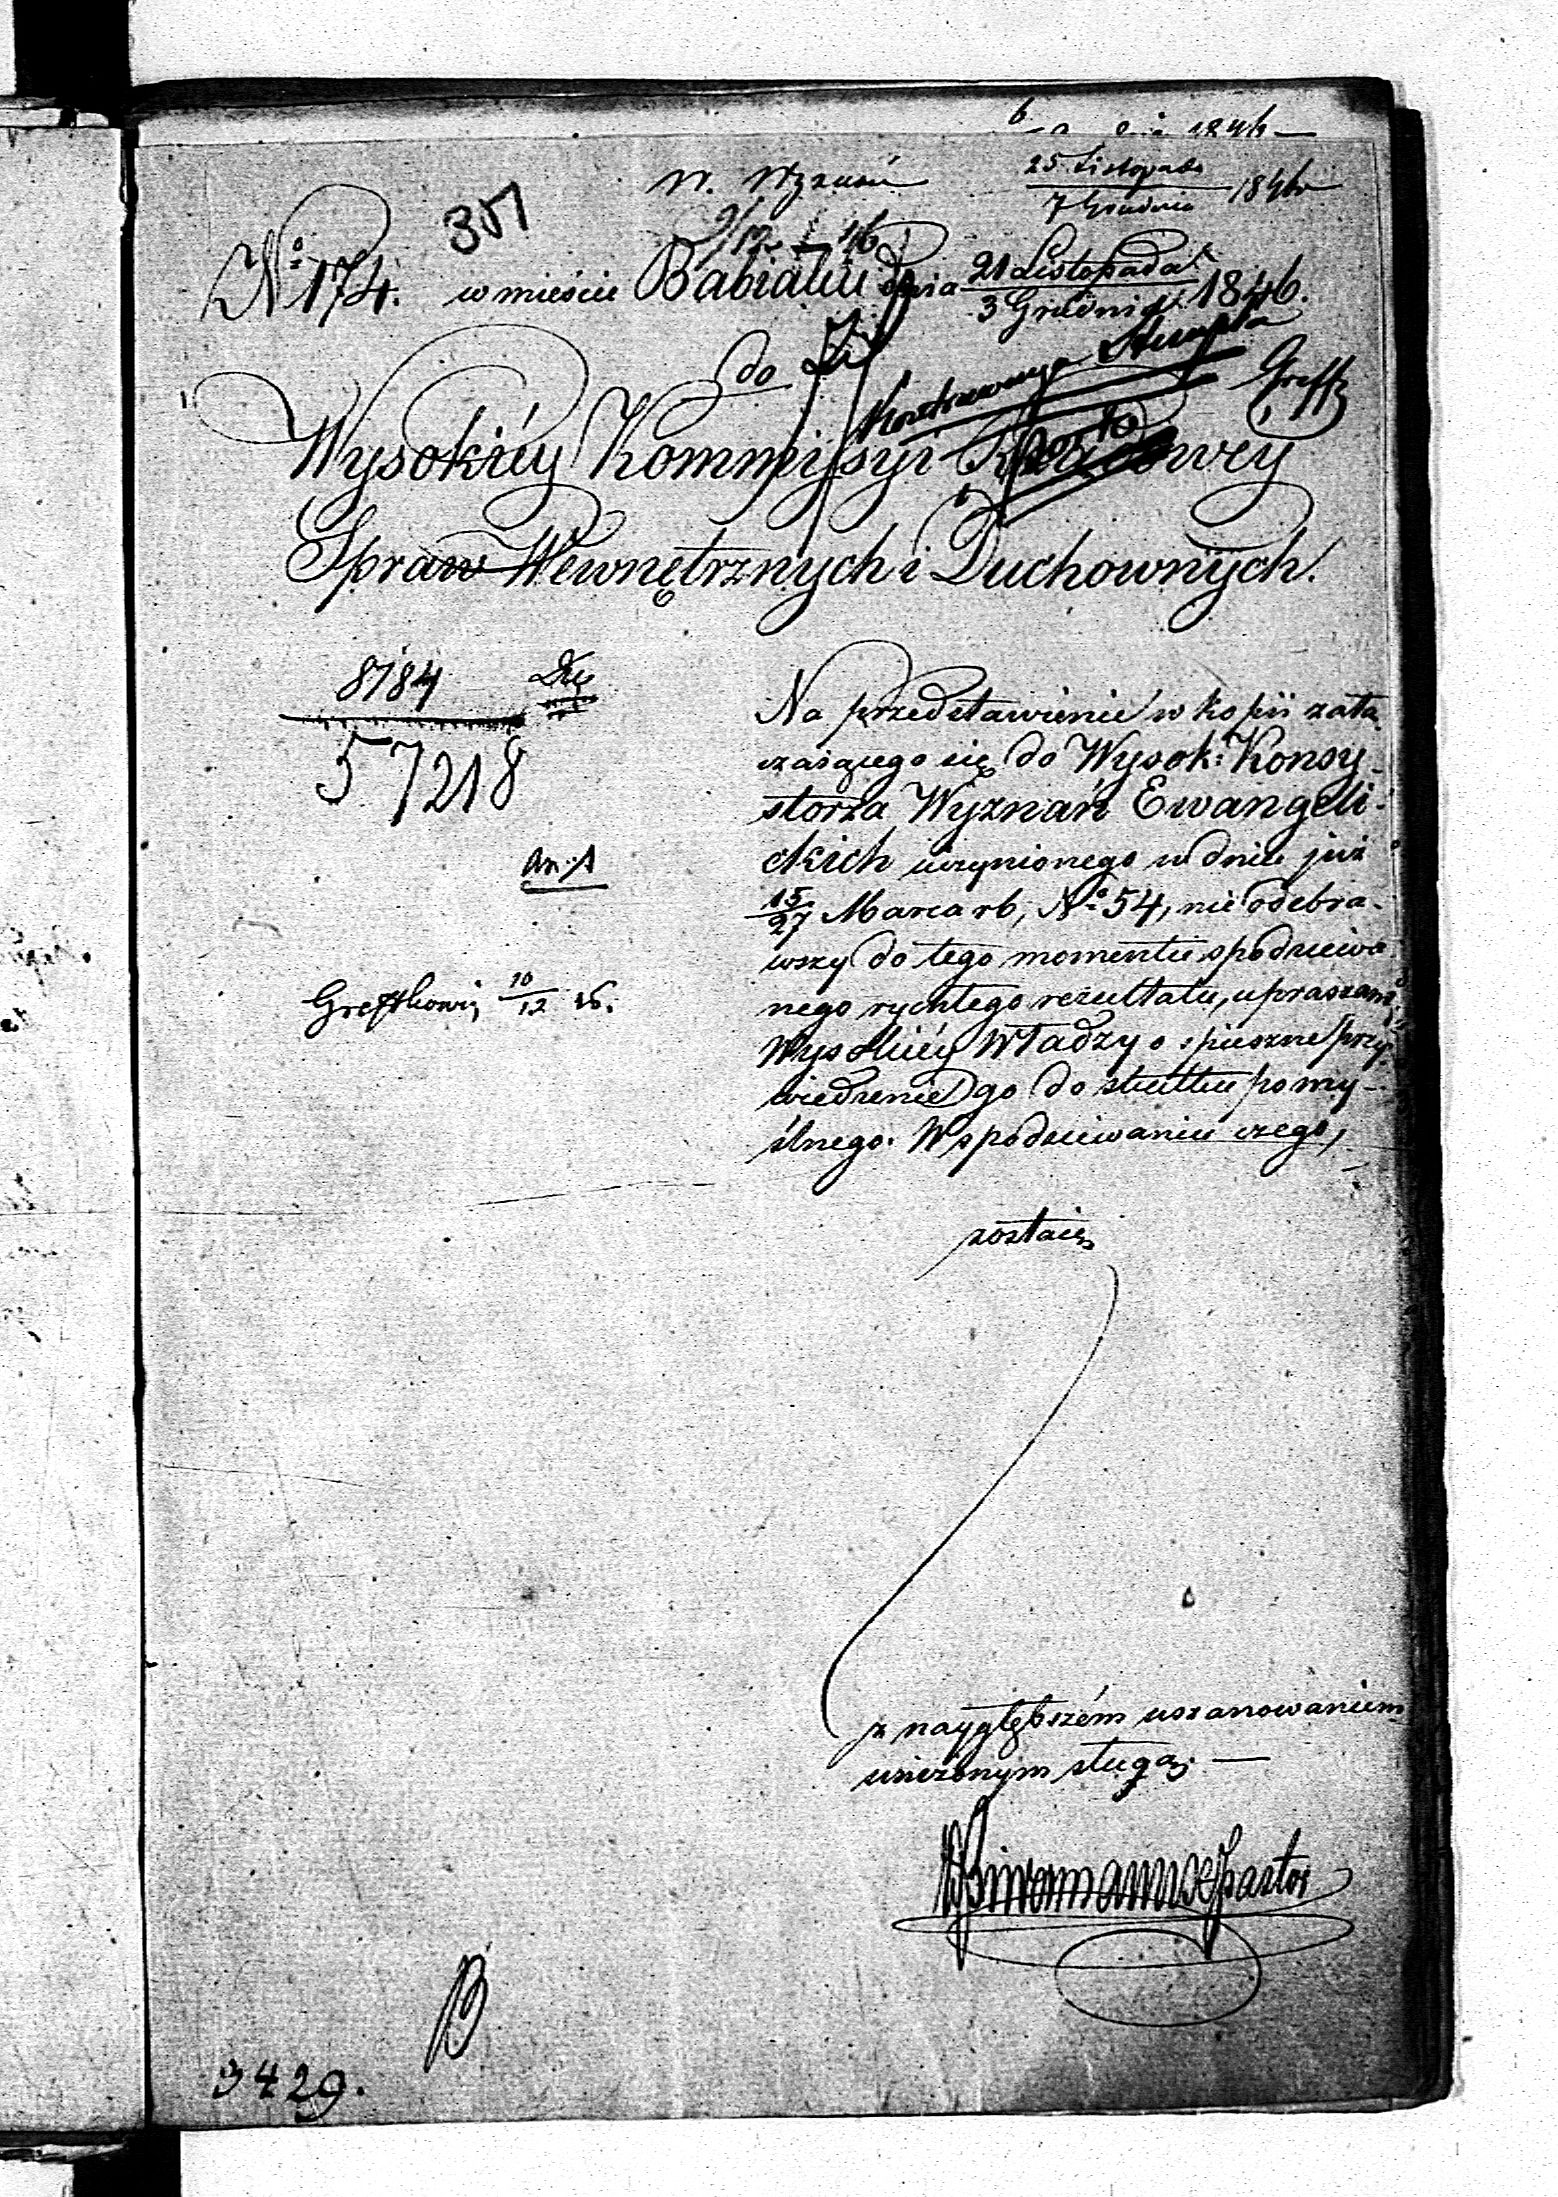 W. Wyznań
25 Listopada
7 Grudnia 1846
351
9/12 46
No 174. w mieście Babiaku dnia 21 Listopada
3 Grudnia 1846.
do
Greffk
Wysokiéy Kommissyi Rządowéy
Spraw Wewnętrznych i Duchownych.
8784
57218
an: 1
Na przedstawienie w kopii załą
czaiącego się do Wysok: Konsy-
storza Wyznań Ewangeli-
ckich uczynionego w dniu już
15/27 Marca rb, No 54, nie odebra-
wszy do tego momentu spodziewa
nego rychłego rezultatu, upraszam
Wysokiéy Władzy o spieszne przy-
wiedzenie go do skutku pomy-
ślnego. W spodziewaniu czego,
Greffkowi 10/12 46.
zostaię
z naygłębszém uszanowaniem
uniżonym sługą. —
Pastor
B
3429.